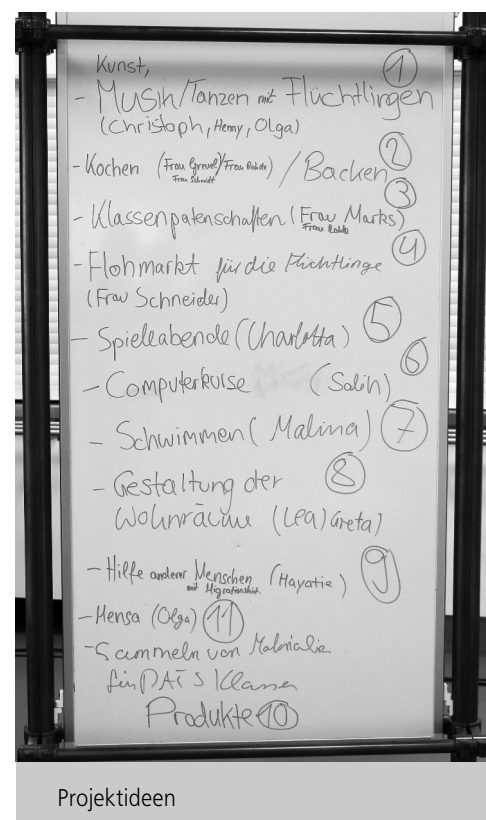 Kunst, 1
- Musik/Tanzen mit Flüchtlingen
(Christoph, Henny, Olga)
2
- Kochen (Frau Greve?/Frau Rohde) / Backen
Frau Schmidt
3
- Klassenpatenschaften (Frau Marks)
Frau Rohde
4
- Flohmarkt für die Flüchtlinge
(Frau Schneider)
- Spieleabende (Charlotta) 5
6
- Computerkurse (Salih)
- Schwimmen (Malina) 7
- Gestaltung der 8
Wohnräume (Lea) Greta)
- Hilfe anderer Menschen (Hayatie) 9
mit
- Mensa (Olga) 11
- Sammeln von
für DAZ Klassen
Produkte 10
Projektideen